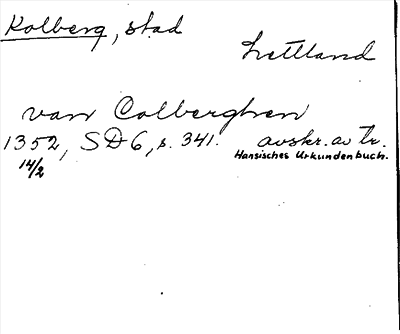 Kolberg, stad
Lettland
van Colberghen
1352, SD6, s. 341. avskr. av tr.
14/2 Hansisches Urkundenbuch.